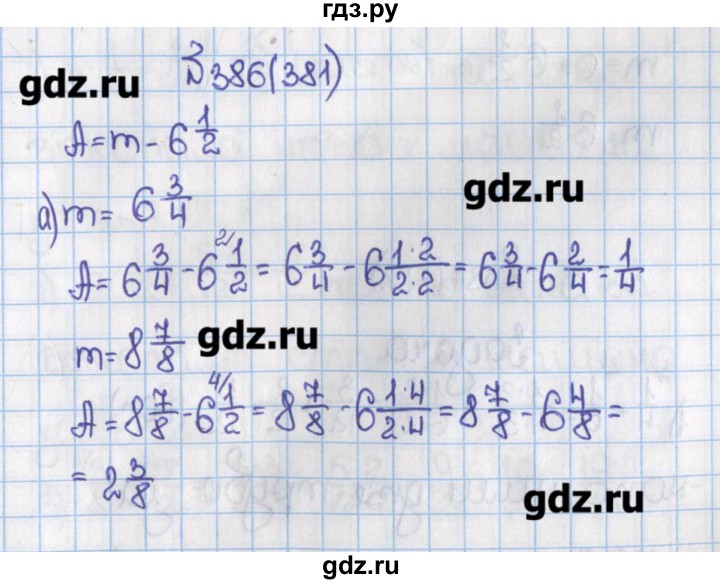 гдз.ру
№386(381)
gdz.ru
A = m - 6 1/2
gdz.ru
а) m = 6 3/4
A = 6 3/4 - 6 1/2 ²⁄ = 6 3/4 - 6 1·2/2·2 = 6 3/4 - 6 2/4 = 1/4
gdz.ru
m = 8 7/8
A = 8 7/8 - 6 1/2 ⁴⁄ = 8 7/8 - 6 1·4/2·4 = 8 7/8 - 6 4/8 =
= 2 3/8
gdz.ru
gdz.ru